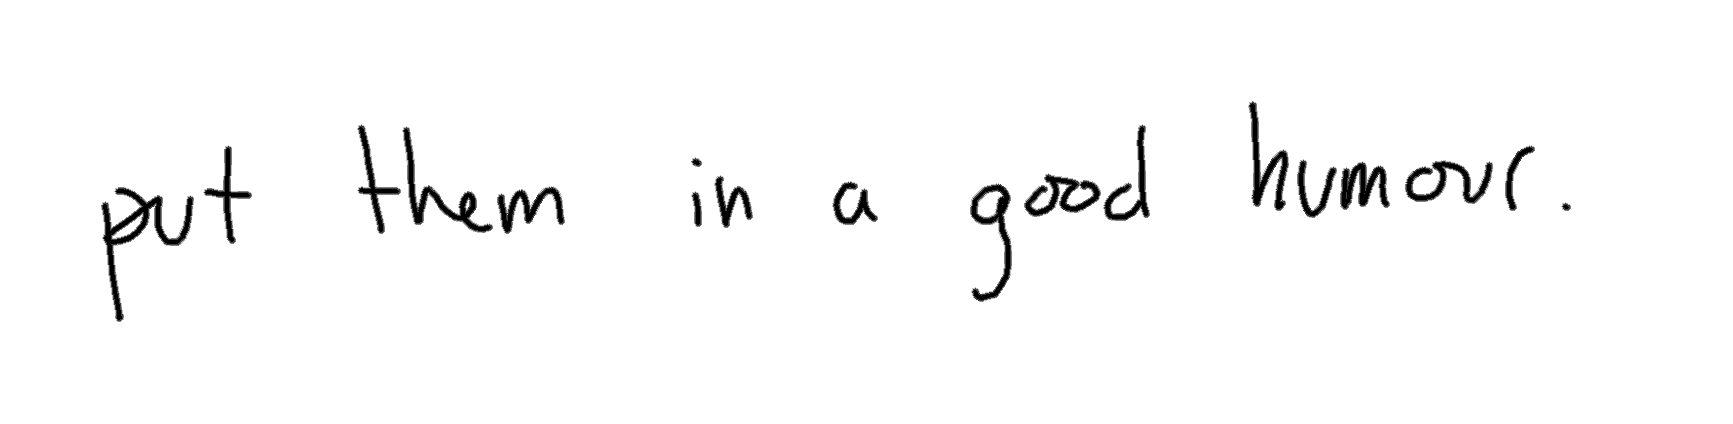 put them in a good humour.